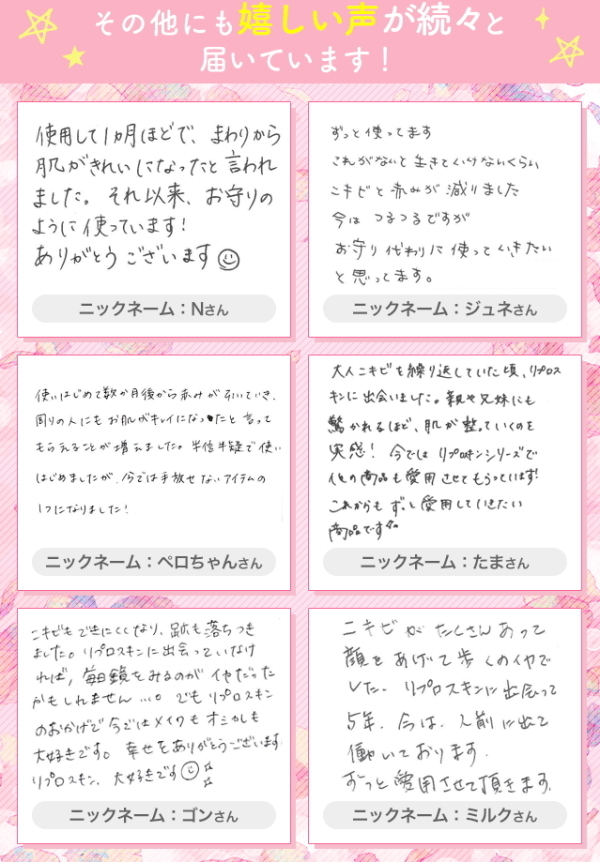 その他にも嬉しい声が続々と
届いています！
使用して1ヵ月ほどで、まわりから
肌がきれいになったと言われ
ました。それ以来、お守りの
ように使っています!
ありがとうございます
ニックネーム：Nさん
ずっと使ってます
これがないと生きていけないくらい
ニキビと赤みが減りました
今はつるつるですが
お守り代わりに使っていきたい
と思ってます。
ニックネーム：ジュネさん
使いはじめて数か月後から赤みが引いていき、
周りの人にもお肌がキレイになったと言って
もらえることが増えました。半信半疑で使い
はじめましたが、今では手放せないアイテムの
1つになりました!
ニックネーム：ペロちゃんさん
大人ニキビを繰り返していた頃、リプロス
キンに出会いました。親や兄妹にも
驚かれるほど、肌が整っていくのを
実感! 今ではリプロスキンシリーズで
他の商品も愛用させてもらっています!
これからもずっと愛用していきたい
商品です
ニックネーム：たまさん
ニキビもできにくくなり、跡も落ちつき
ました。リプロスキンに出会っていなけ
れば、毎日鏡をみるのがイヤだった
かもしれません…。でもリプロスキン
のおかげで今ではメイクもオシャレも
大好きです。幸せをありがとうございます
リプロスキン、大好きです
ニックネーム：ゴンさん
ニキビがたくさんあって
顔をあげて歩くのイヤで
した。リプロスキンに出会って
5年、今は、人前に出て
働いております。
ずっと愛用させて頂きます。
ニックネーム：ミルクさん